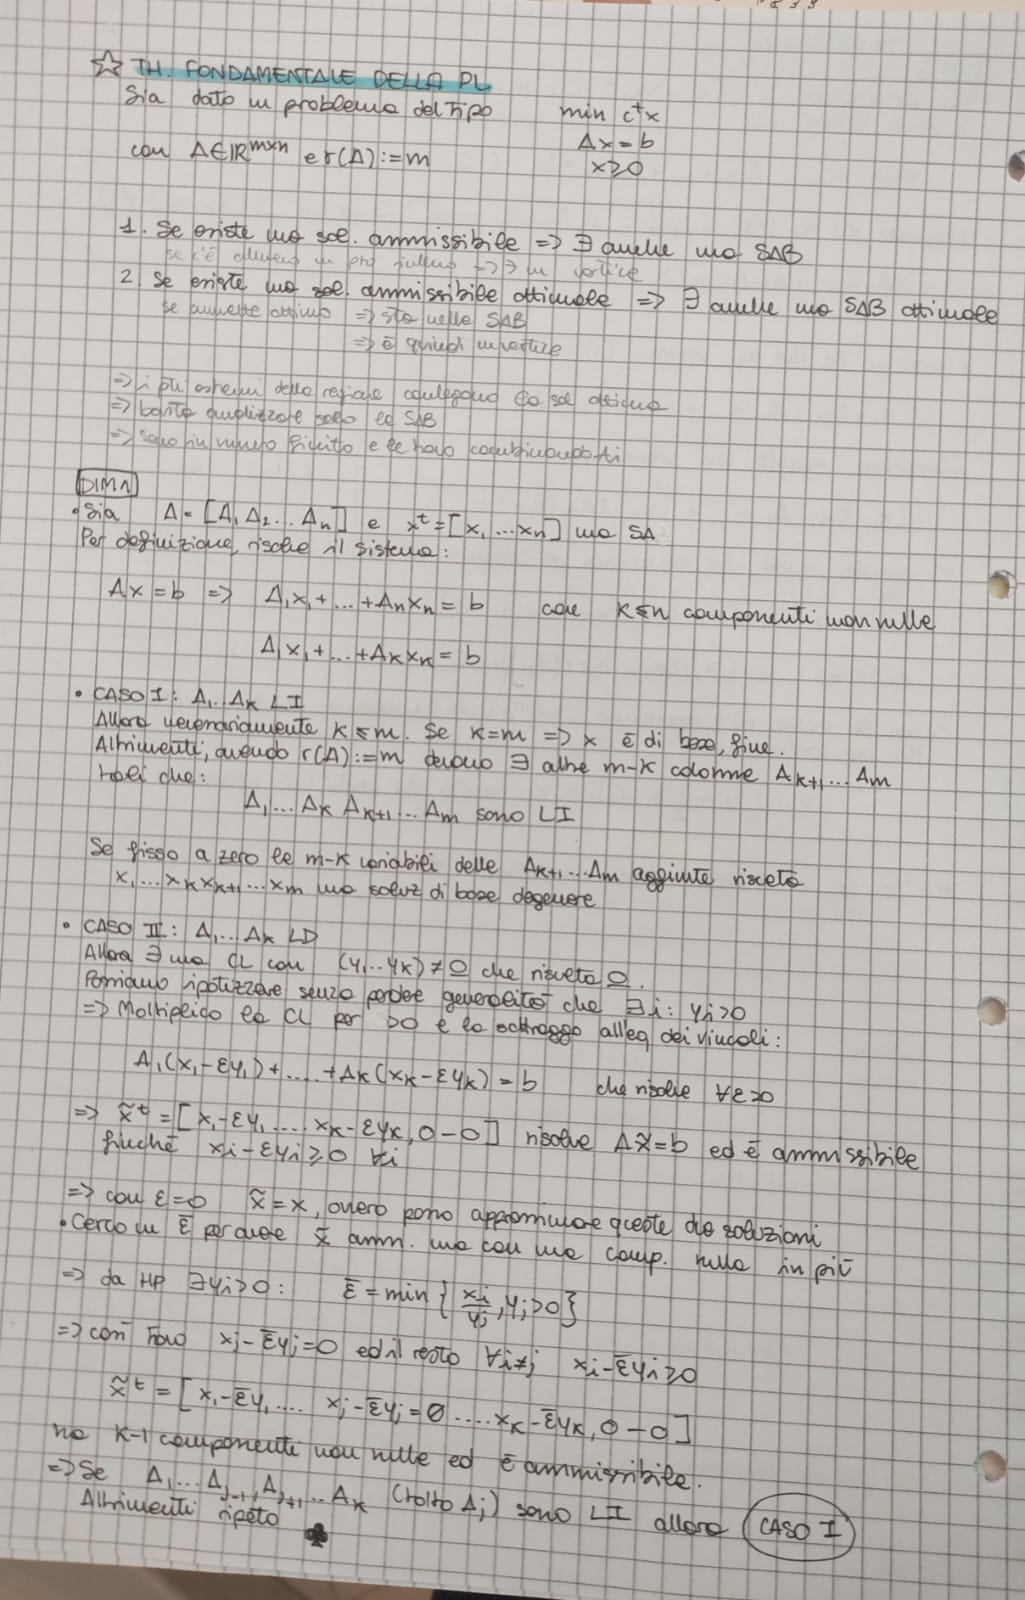 ☆ TH. FONDAMENTALE DELLA PL
Sia dato un problema del tipo min cᵗx
Ax = b
con A∈ℝᵐˣⁿ e r(A):=m x≥0
1. Se esiste una sol. ammissibile => ∃ anche una SAB
se c'è almeno un => ∃ un vertice
2. Se esiste una sol. ammissibile ottimale => ∃ anche una SAB ottimale
se ammette ottimo => sta nelle SAB
=> è quindi un vertice
=> i pti estremi della regione contengono la sol ottima
=> basta analizzare solo le SAB
=> sono in numero finito e le trovo combinando Ai
DIM 1
• Sia A = [A₁ A₂ ... Aₙ] e xᵗ = [x₁ ... xₙ] una SA
Per definizione, risolve il sistema:
Ax = b => A₁x₁+...+Aₙxₙ = b con K≤n componenti non nulle
A₁x₁+...+Aₖxₖ = b
• CASO I: A₁..Aₖ LI
Allora necessariamente K≤m. Se K=m => x è di base, fine.
Altrimenti, avendo r(A):=m devono ∃ altre m-K colonne Aₖ₊₁...Aₘ
tali che:
A₁...Aₖ Aₖ₊₁...Aₘ sono LI
Se fisso a zero le m-K variabili delle Aₖ₊₁...Aₘ aggiunte risulta
x₁...xₖxₖ₊₁...xₘ una soluz di base degenere
• CASO II: A₁...Aₖ LD
Allora ∃ una CL con (y₁..yₖ)≠0 che risulta 0.
Possiamo ipotizzare senza perdere generalità che ∃i: yᵢ>0
=> Moltiplico la CL per >0 e la sottraggo all'eq dei vincoli:
A₁(x₁-εy₁)+....+Aₖ(xₖ-εyₖ) = b che risolve ∀ε>0
=> x̃ᵗ = [x₁-εy₁....xₖ-εyₖ, 0-0] risolve Ax̃=b ed è ammissibile
finché xᵢ-εyᵢ≥0 ∀i
=> con ε=0 x̃=x, ovvero posso approssimare queste due soluzioni
• Cerco un ε̄ per avere x̃ amm. ma con una comp. nulla in più
=> da HP ∃yᵢ>0: ε̄ = min {xⱼ/yⱼ, yⱼ>0}
=> così trovo xⱼ-ε̄yⱼ=0 ed il resto ∀i≠j xᵢ-ε̄yᵢ≥0
x̃ᵗ = [x₁-ε̄y₁.... xⱼ-ε̄yⱼ=0....xₖ-ε̄yₖ, 0-0]
ha K-1 componenti non nulle ed è ammissibile.
=> Se A₁...Aⱼ₋₁, Aⱼ₊₁...Aₖ (tolto Aⱼ) sono LI allora CASO I
Altrimenti ripeto ♣